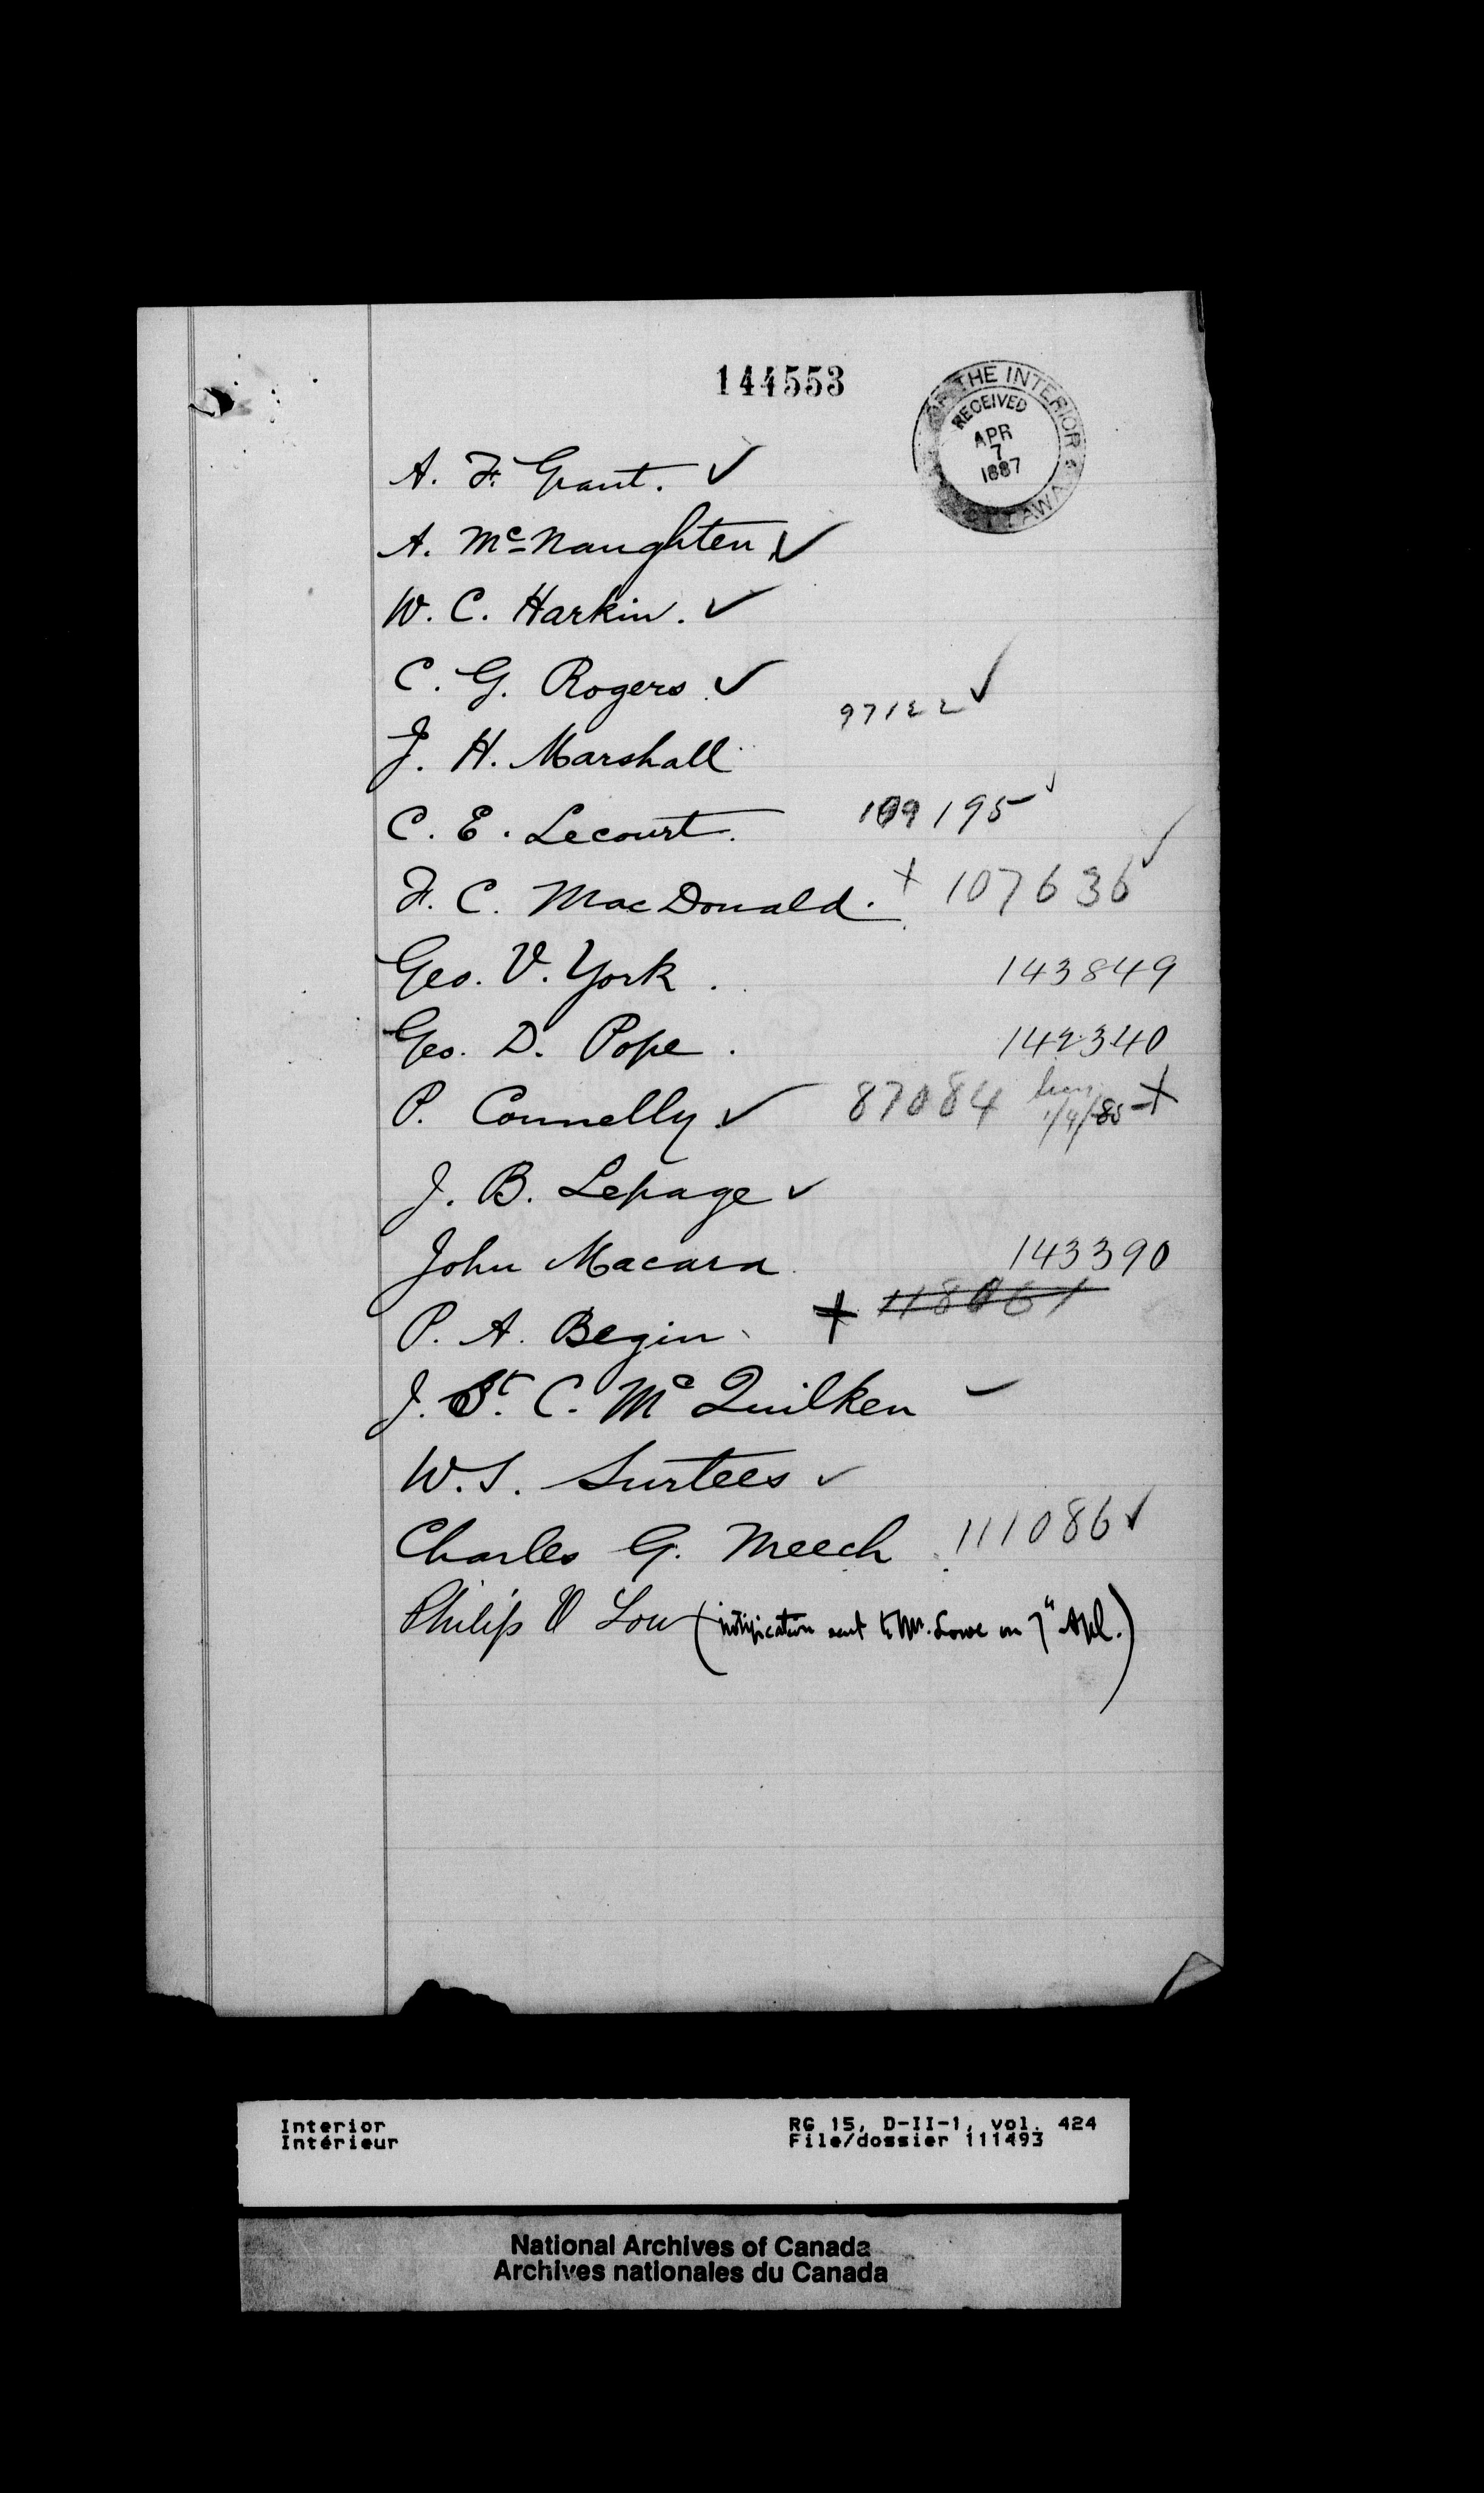 144553
OF THE INTERIOR
RECEIVED
APR
7
1887
OTTAWA
A. F. Grant. ✓
A. McNaughten ✓
W. C. Harkin. ✓
C. G. Rogers ✓
97122 ✓
J. H. Marshall
C. E. Lecourt. 109195 ✓
F. C. MacDonald. + 107636 ✓
Geo. V. York. 143849
Geo. D. Pope. 142340
P. Connelly ✓ 87084 1/4/85 +
J. B. Lepage ✓
John Macara 143390
P. A. Begin + 118061
J. St. C. McQuilken ✓
W. S. Surtees ✓
Charles G. Meech. 111086 ✓
Philip V Low (notification sent to Mr. Lowe on 7" Apl.)
Interior
Intérieur
RG 15, D-II-1, vol. 424
File/dossier 111493
National Archives of Canada
Archives nationales du Canada